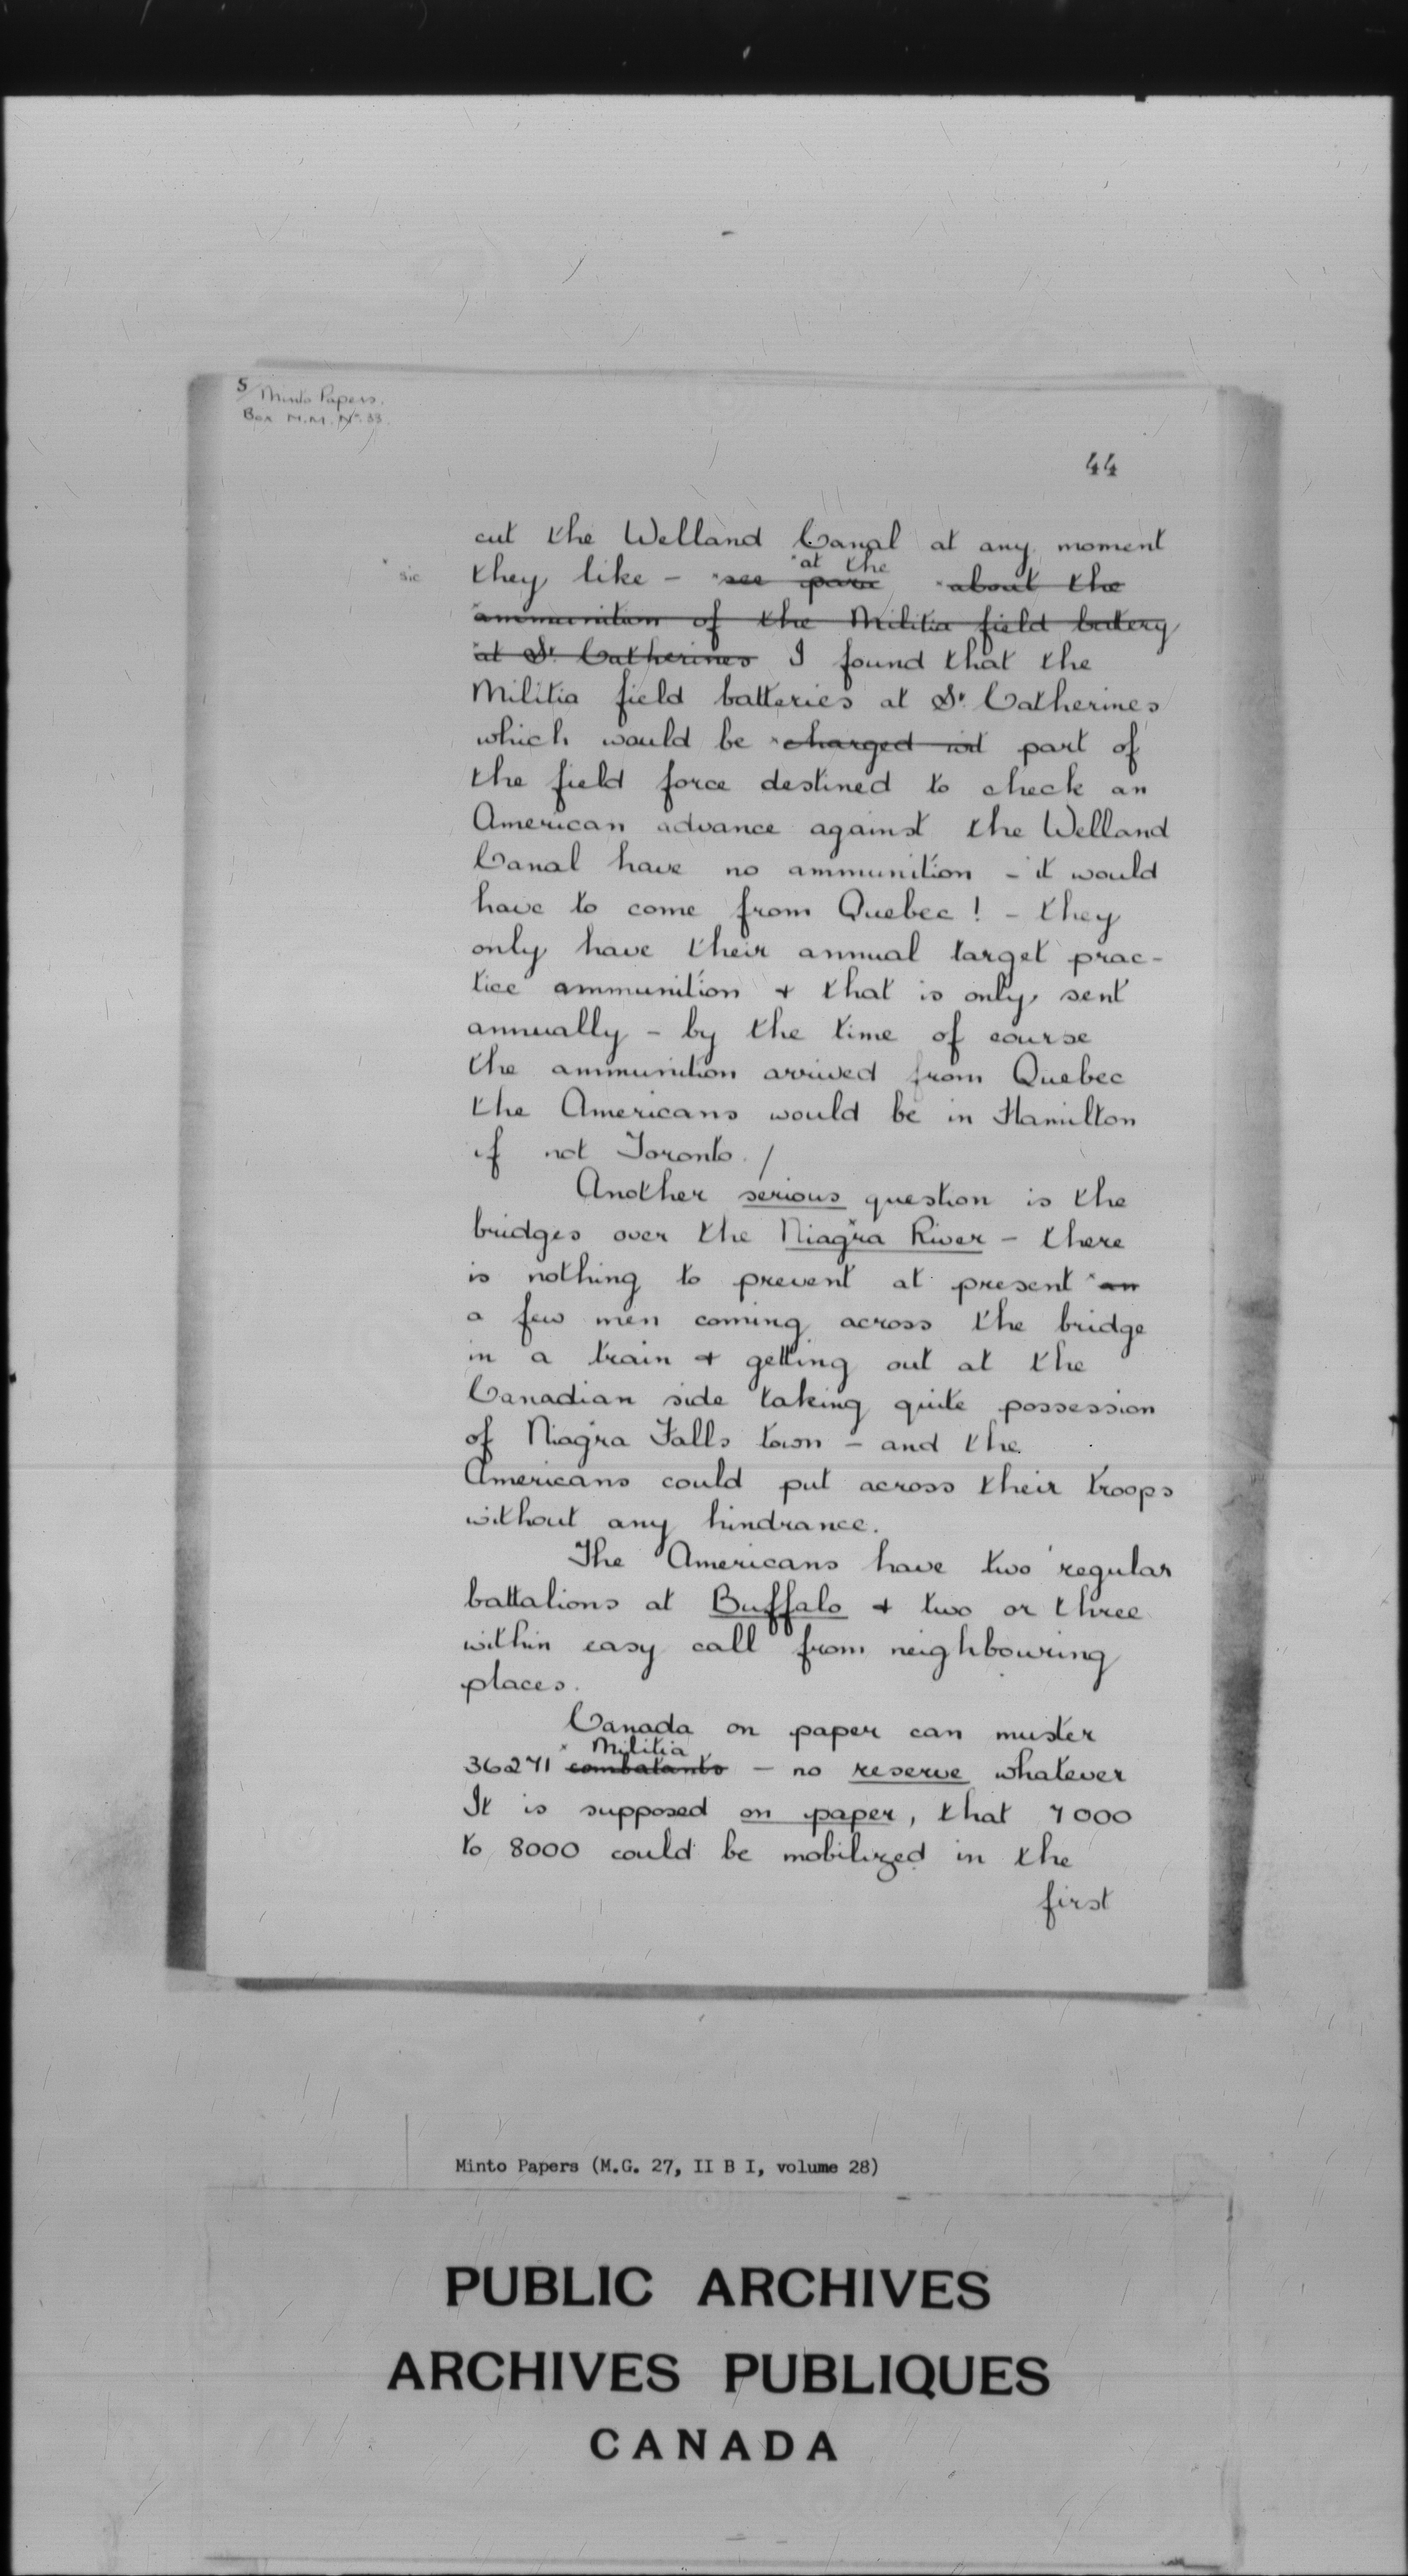 5/ Minto Papers.
Box M.M. No. 33.
44
cut the Welland Canal at any moment
at the
x sic they like - see para about the
ammunition of the Militia field battery
at St. Catherines I found that the
Militia field batteries at St. Catherines
which would be charged wit part of
the field force destined to check an
American advance against the Welland
Canal have no ammunition - it would
have to come from Quebec! - they
only have their annual target prac-
tice ammunition + that is only sent
annually - by the time of course
the ammunition arrived from Quebec
the Americans would be in Hamilton
if not Toronto. /
Another serious question is the
bridges over the Niagra River - there
is nothing to prevent at present an
a few men coming across the bridge
in a train + getting out at the
Canadian side taking quite possession
of Niagra Falls town - and the
Americans could put across their troops
without any hindrance.
The Americans have two regular
battalions at Buffalo + two or three
within easy call from neighbouring
places.
Canada on paper can muster
x Militia
36271 combatants - no reserve whatever
It is supposed on paper, that 7000
to 8000 could be mobilized in the
first
Minto Papers (M.G. 27, II B I, volume 28)
PUBLIC ARCHIVES
ARCHIVES PUBLIQUES
CANADA